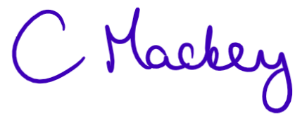 C Mackey